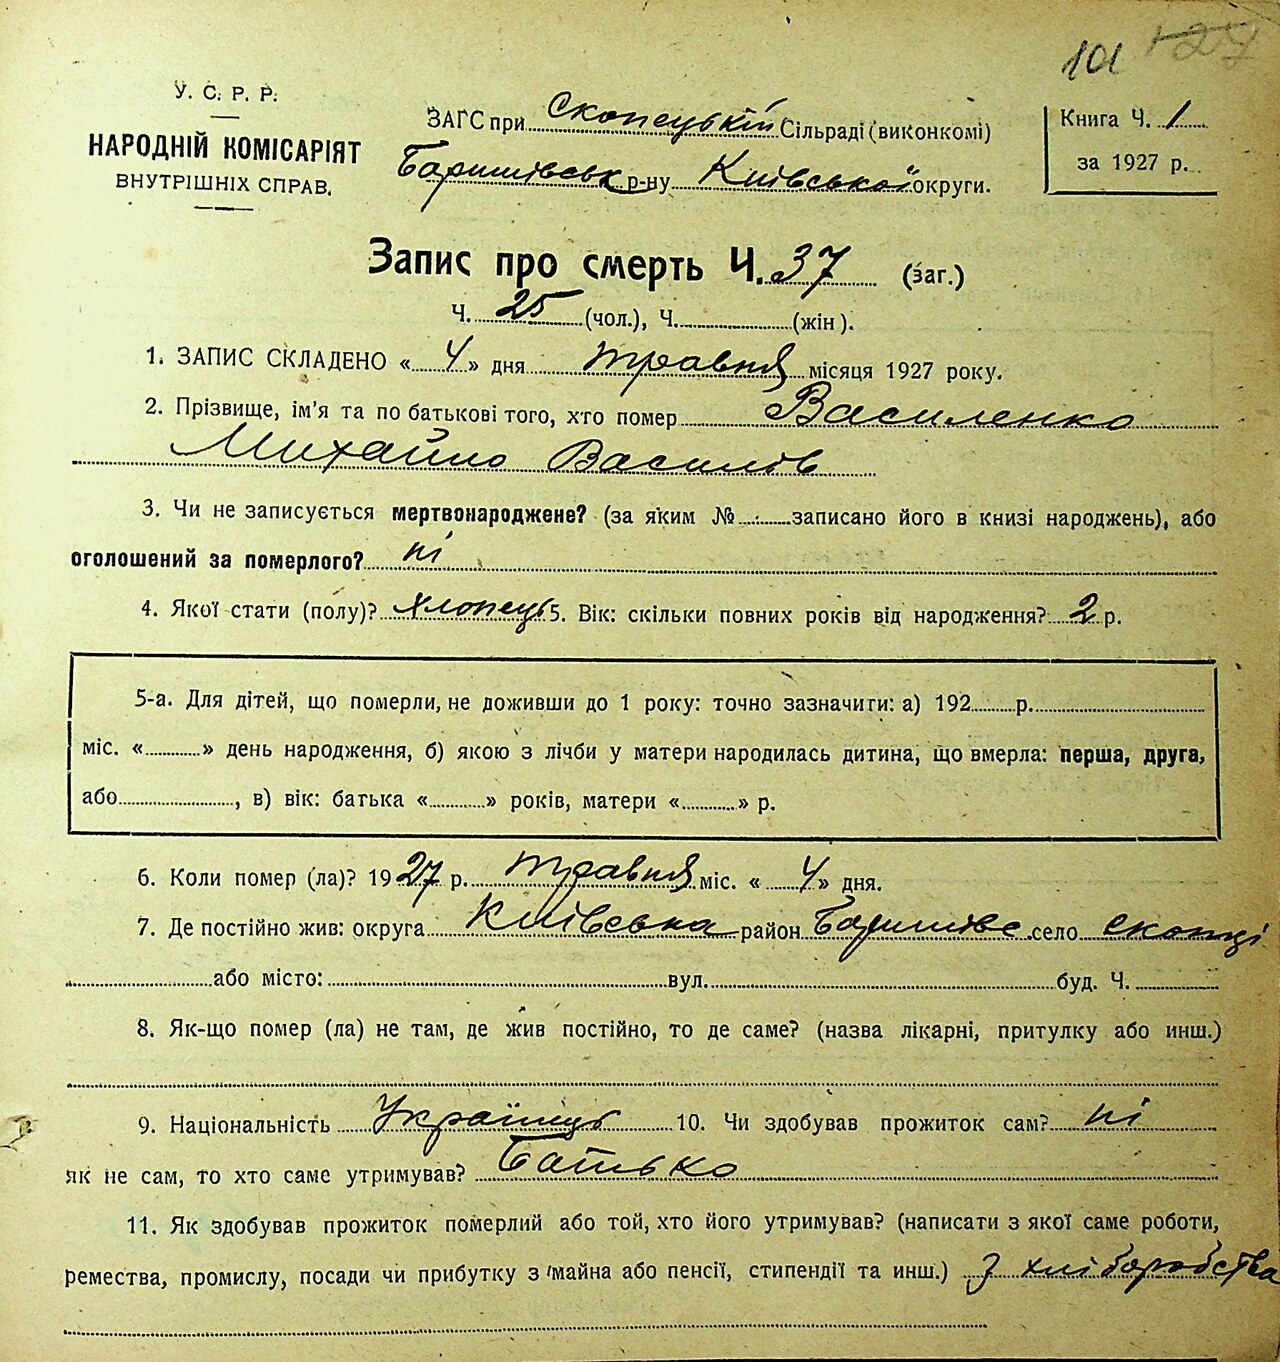 101 127
У. С. Р. Р.
НАРОДНІЙ КОМІСАРІЯТ
ВНУТРІШНІХ СПРАВ.
ЗАГС при Скопецькій Сільраді (виконкомі)
Баришівськ р-ну Київської округи.
Книга Ч. 1
за 1927 р.
Запис про смерть Ч. 37 (заг.)
Ч. 25 (чол.), Ч. (жін).
1. ЗАПИС СКЛАДЕНО « 4 » дня травня місяця 1927 року.
2. Прізвище, ім'я та по батькові того, хто помер Василенко
Михайло Василів
3. Чи не записується мертвонароджене? (за яким № записано його в книзі народжень), або
оголошений за померлого? ні
4. Якої стати (полу)? хлопець 5. Вік: скільки повних років від народження? 2 р.
5-а. Для дітей, що померли, не доживши до 1 року: точно зазначити: а) 192 р.
міс. « » день народження, б) якою з лічби у матери народилась дитина, що вмерла: перша, друга,
або , в) вік: батька « » років, матери « » р.
6. Коли помер (ла)? 1927 р. травня міс. « 4 » дня.
7. Де постійно жив: округа Київська район Баришівс. село Скопці
або місто: вул. буд. Ч.
8. Як-що помер (ла) не там, де жив постійно, то де саме? (назва лікарні, притулку або инш.)
9. Національність Українець 10. Чи здобував прожиток сам? ні
як не сам, то хто саме утримував? Батько
11. Як здобував прожиток померлий або той, хто його утримував? (написати з якої саме роботи,
ремества, промислу, посади чи прибутку з майна або пенсії, стипендії та инш.) З хліборобства